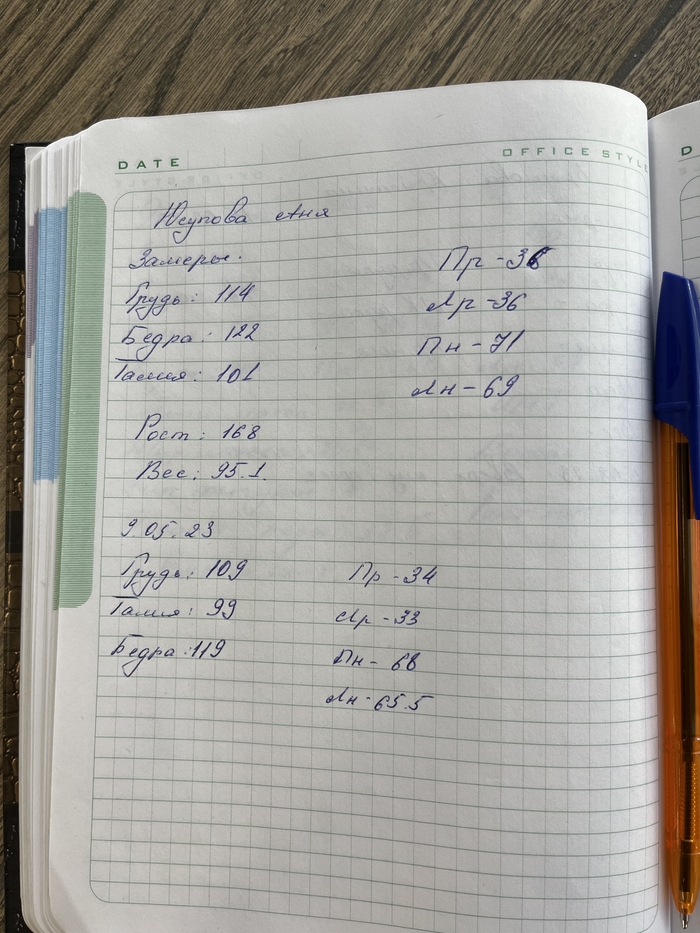 DATE
OFFICE STYLE
Юсупова Аня
Замеры.
Грудь: 114
Бедра: 122
Талия: 101
Рост: 168
Вес: 95.1.
Пр - 36
Лр - 36
Пн - 71
Лн - 69
9.05.23
Грудь: 109
Талия: 99
Бедра: 119
Пр - 34
Лр - 33
Пн - 68
Лн - 65.5
D